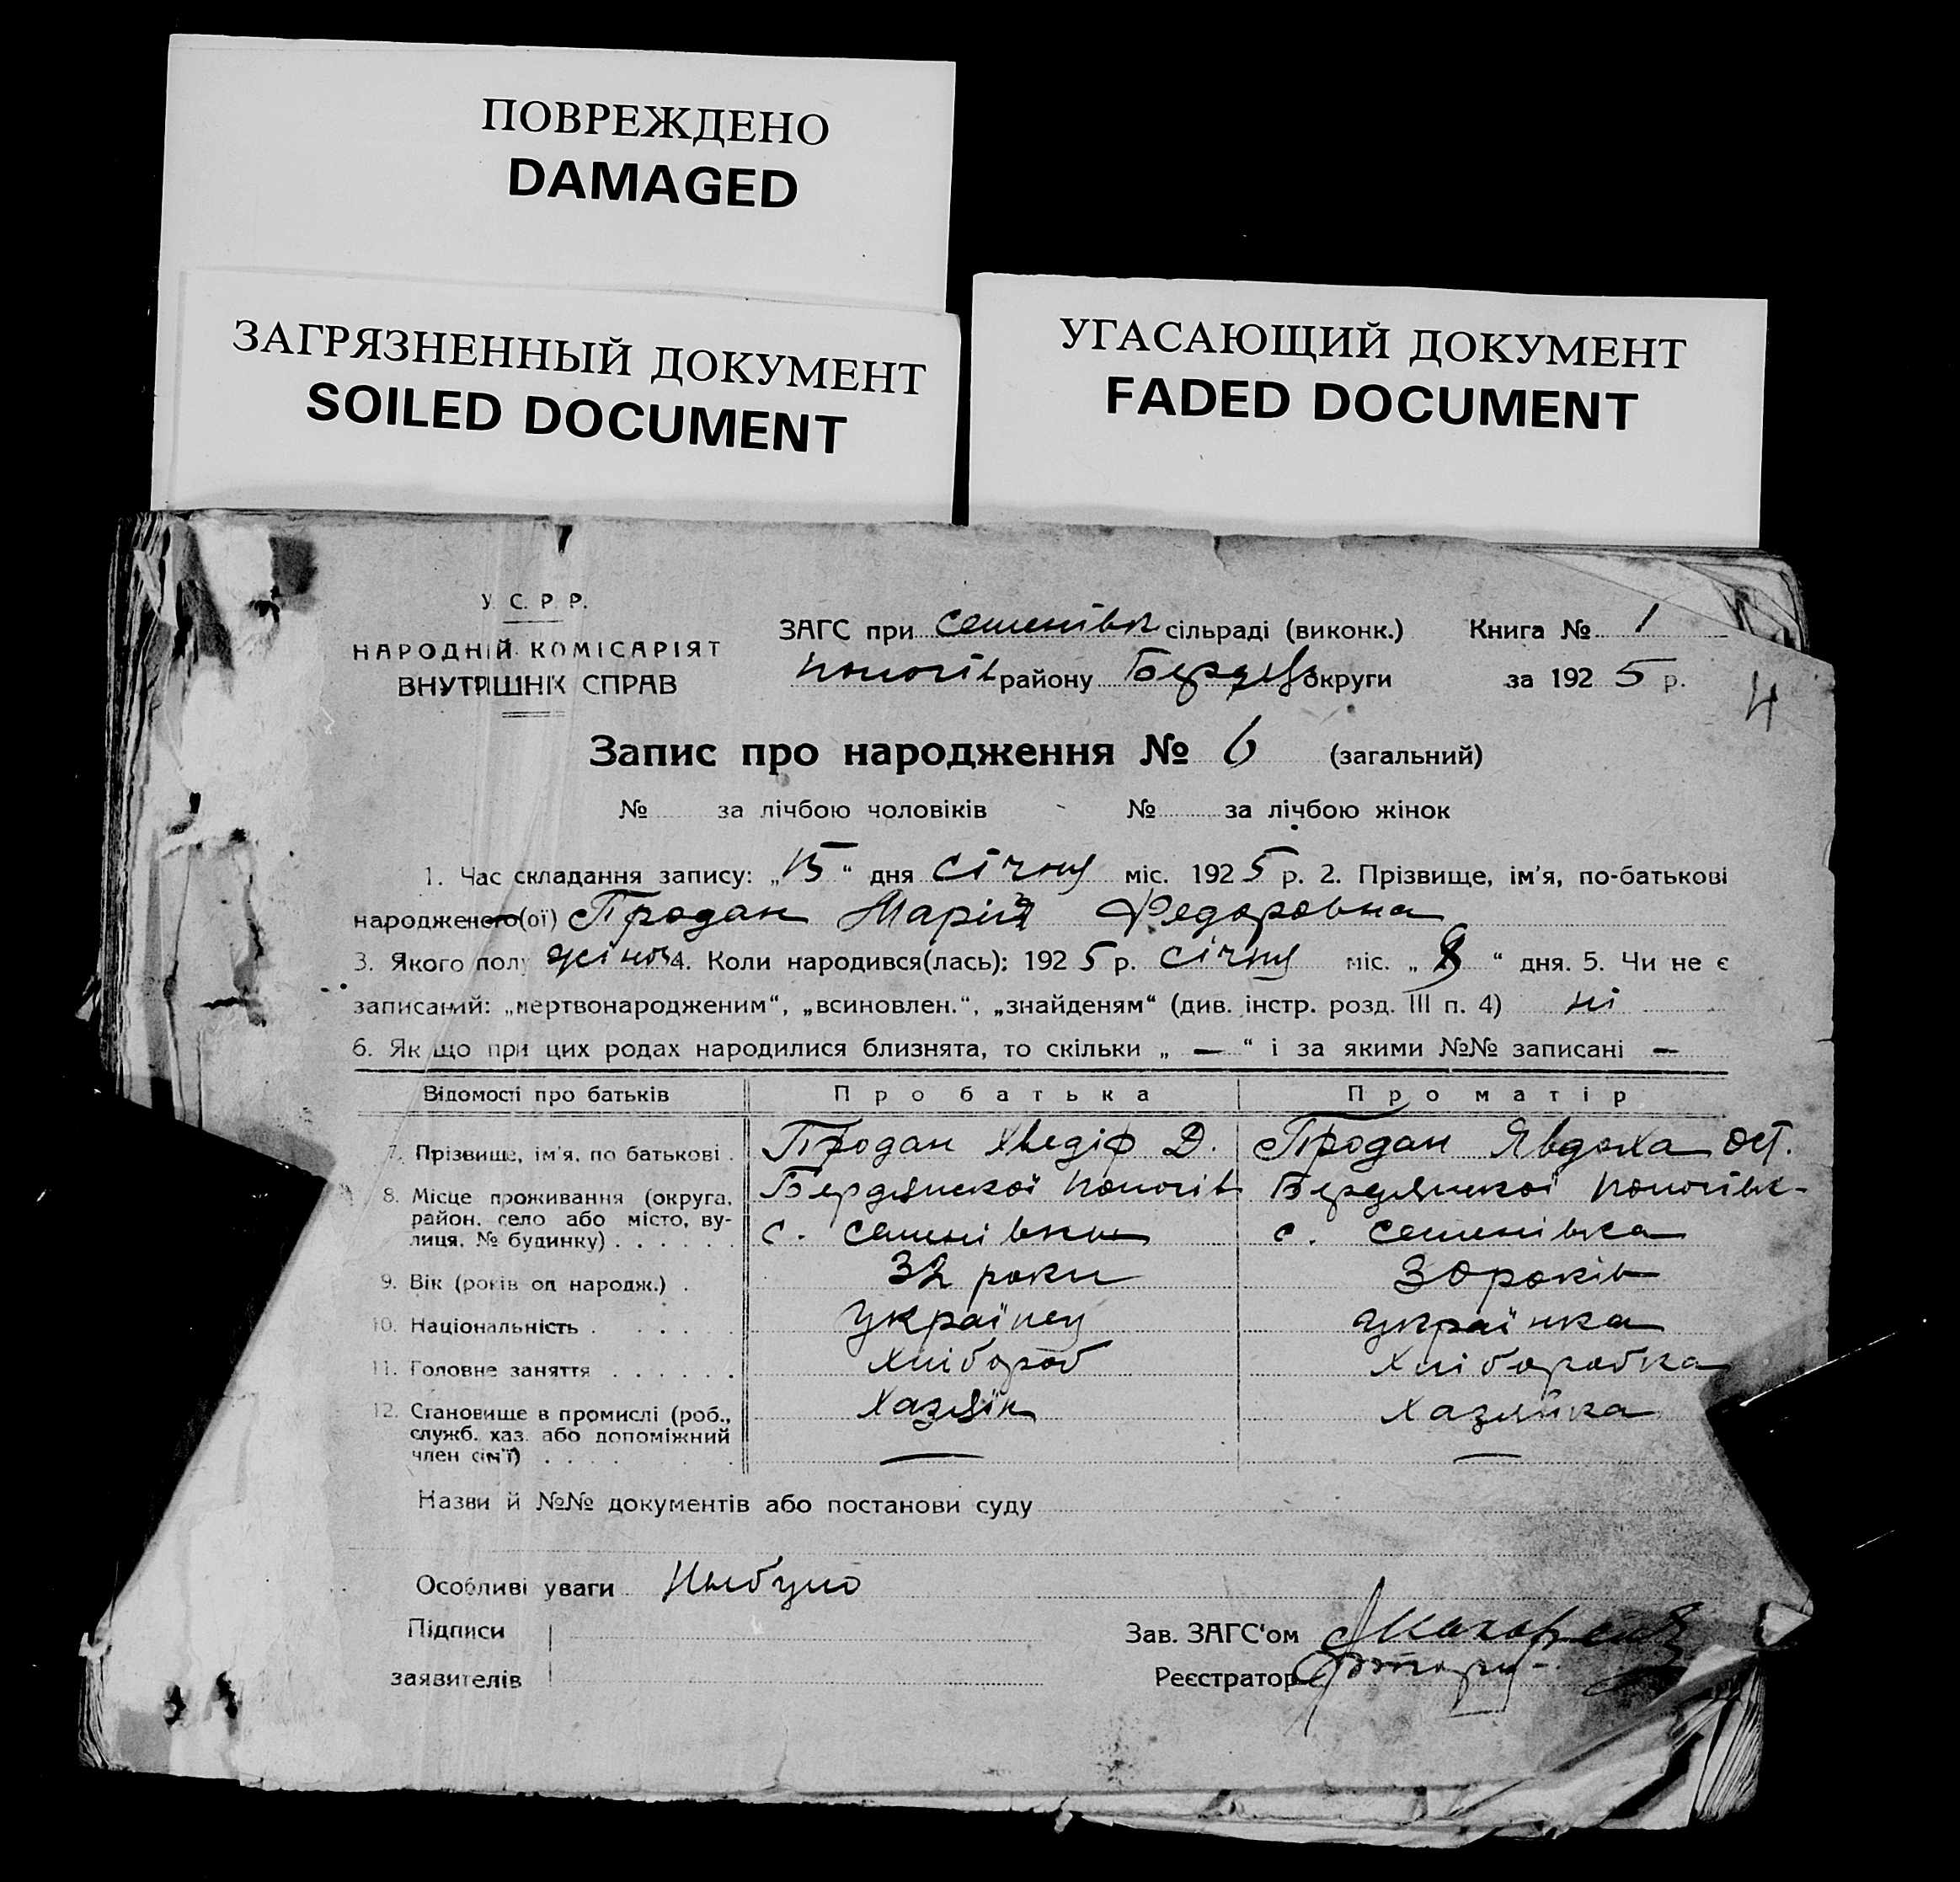 ПОВРЕЖДЕНО
DAMAGED
ЗАГРЯЗНЕННЫЙ ДОКУМЕНТ
SOILED DOCUMENT
УГАСАЮЩИЙ ДОКУМЕНТ
FADED DOCUMENT
У. С. Р. Р.
НАРОДНІЙ КОМІСАРІЯТ
ВНУТРІШНІХ СПРАВ
ЗАГС при Семенівк сільраді (виконк.) Книга № 1
Пологів району Бердян округи за 1925 р.
4
Запис про народження № 6 (загальний)
№ за лічбою чоловіків № за лічбою жінок
1. Час складання запису: „15“ дня січня міс. 1925 р. 2. Прізвище, ім'я, по-батькові
народженого(ої) Продан Марія Федоровна
3. Якого полу жіноч 4. Коли народився(лась): 1925 р. січня міс. „8“ дня. 5. Чи не є
записаний: „мертвонародженим“, „всиновлен.“, „знайденям“ (див. інстр. розд. III п. 4) ні
6. Як що при цих родах народилися близнята, то скільки „ — “ і за якими №№ записані —
Відомості про батьків Про батька Про матір
7. Прізвище, ім'я, по батькові . Продан Хведір Д. Продан Явдоха Ост.
8. Місце проживання (округа, Бердянскої Пологів Бердянскої Пологівк-
район, село або місто, ву- с. Семенівки с. Семенівка
лиця, № будинку) . . . . . .
9. Вік (років од народж.) . 32 роки 30 років
10. Національність . . . . . українец українка
11. Головне заняття . . . . . . хлібороб хліборобка
12. Становище в промислі (роб., хазяїн хазяйка
служб. хаз. або допоміжний
член сім'ї) . . . . — —
Назви й №№ документів або постанови суду
Особливі уваги Небуло
Підписи
заявителів
Зав. ЗАГС'ом
Реєстратор